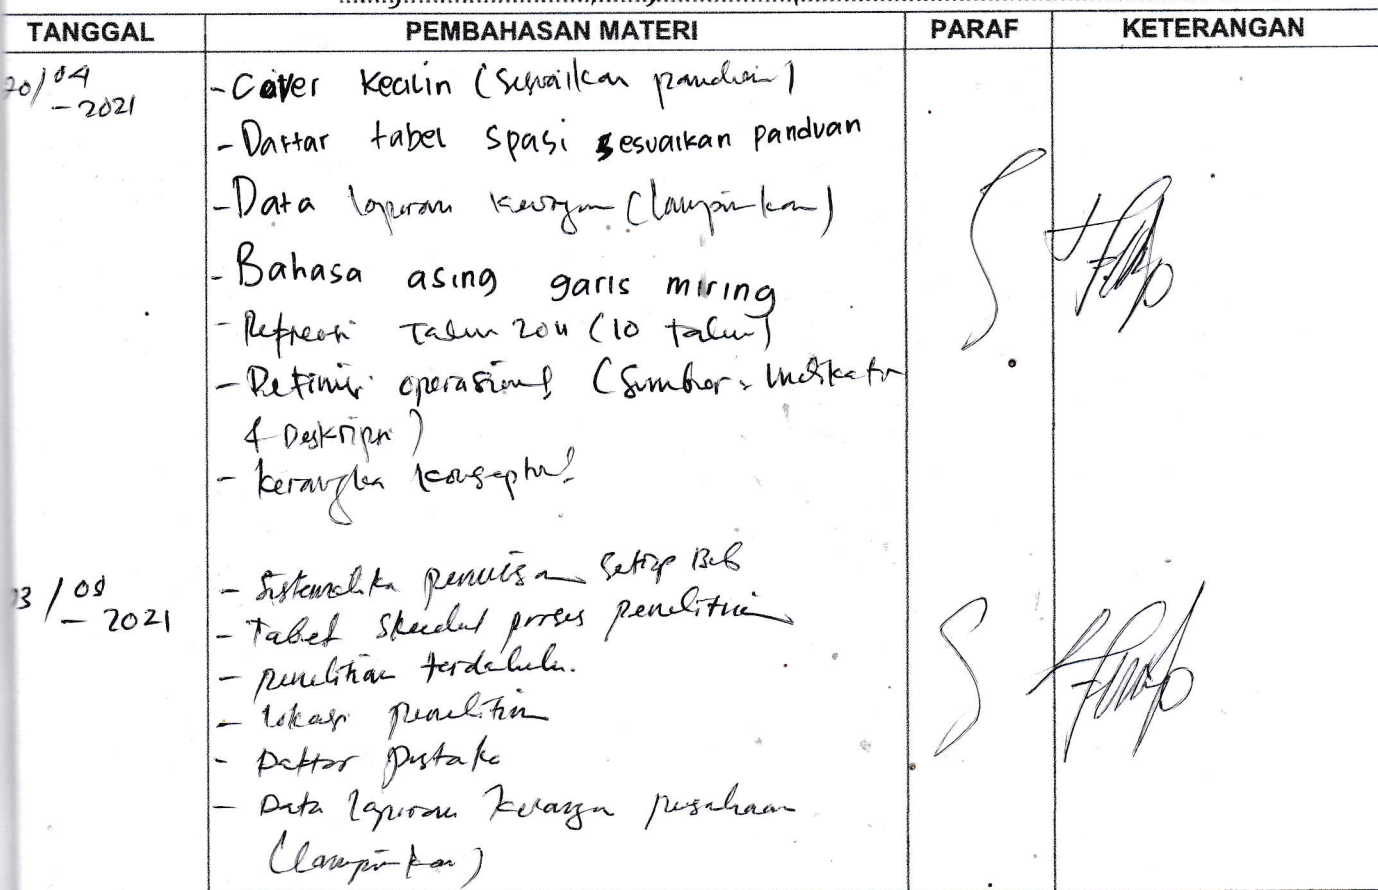 TANGGAL PEMBAHASAN MATERI PARAF KETERANGAN
20/04 - 2021
- Cover kecilin (sesuaikan panduan)
- Daftar tabel spasi sesuaikan panduan
- Data laporan keuangan (lampirkan)
- Bahasa asing garis miring
- Referensi Tahun 2011 (10 tahun)
- Definisi operasional (Sumber, Indikator
& Deskripsi)
- kerangka konseptual
- 2021
- Sistematika penulisan setiap Bab
- Tabel proses penelitian
- penelitian terdahulu.
- lokasi penelitian
- Daftar pustaka
- Data laporan keuangan perusahaan
(lampirkan)